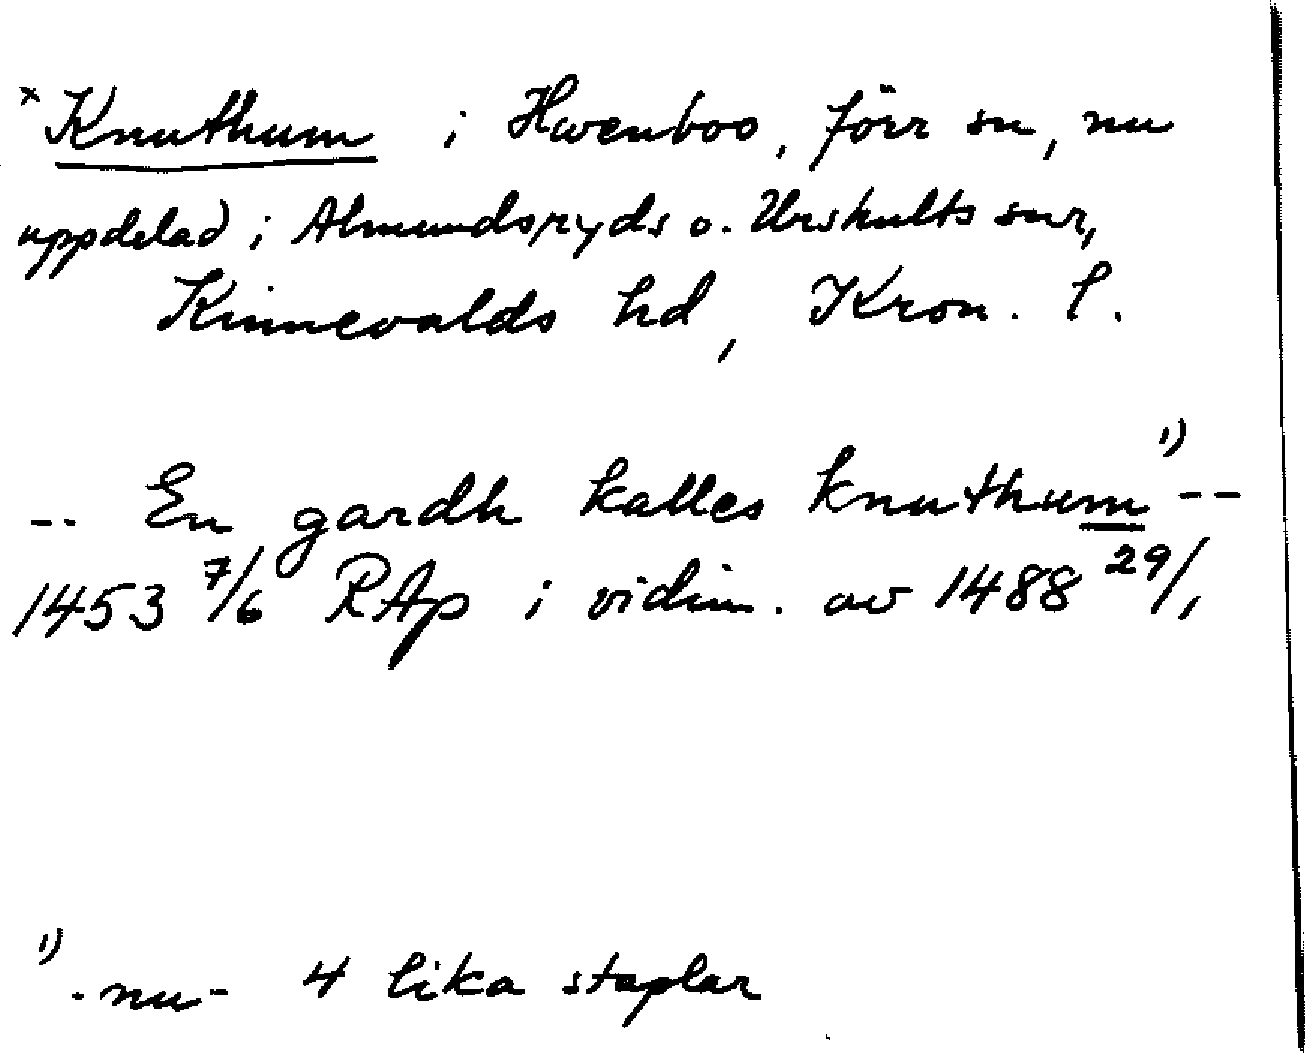 x Knuthum i Hwenboo, förr sn, nu
uppdelad i Almundsryds o. Urshults snr,
Kinnevalds hd, Kron. l.
-- En gardh kalles knuthum 1) --
1453 7/6 RAp i vidim. av 1488 29/1
1) -nu- 4 lika staplar